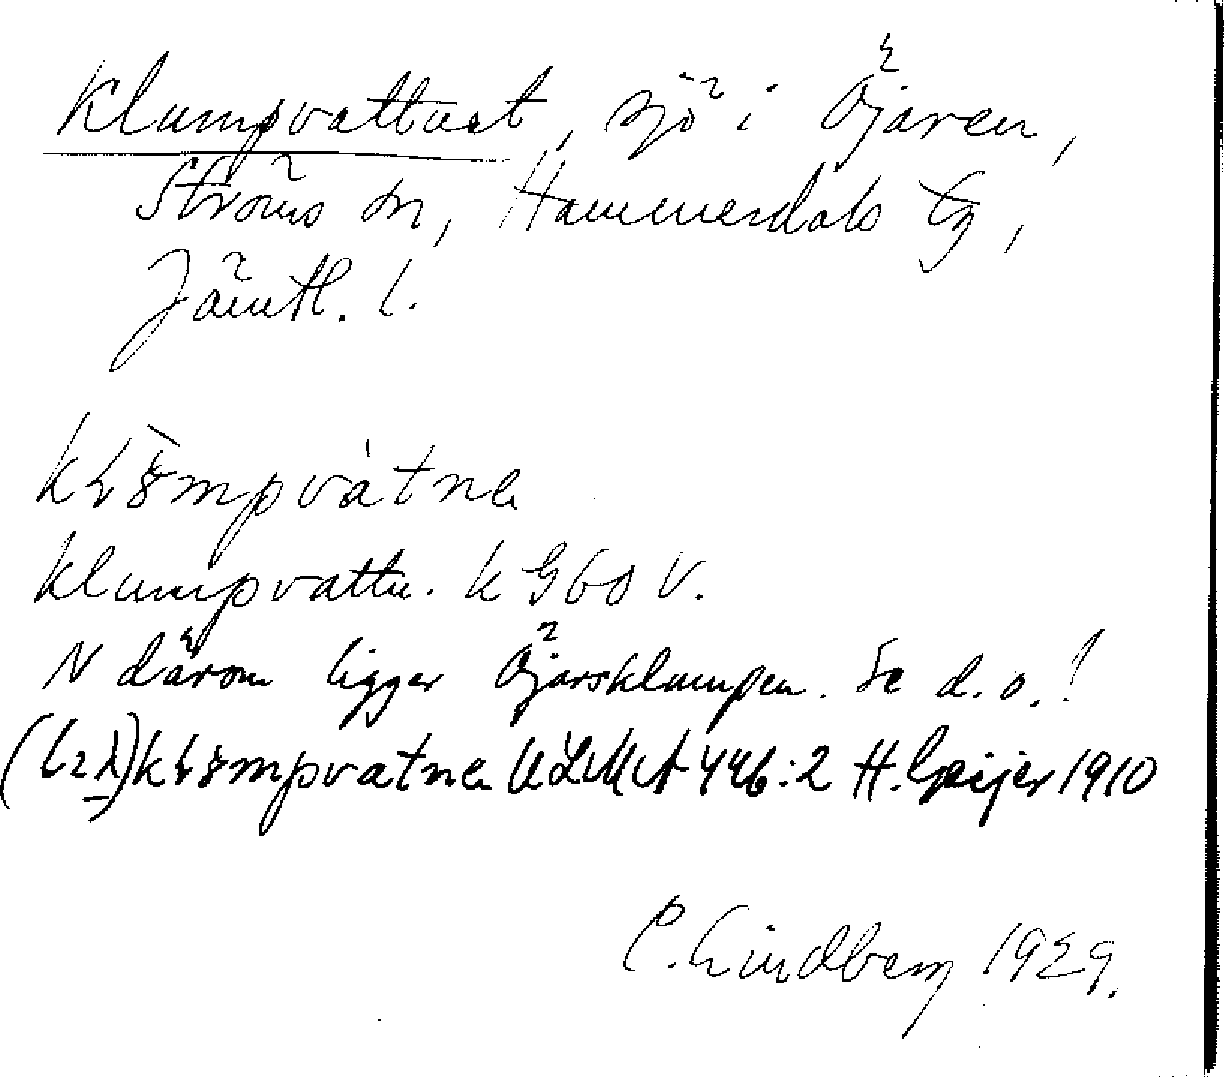 Klumpvattnet, sjö i Öjaren,
Ströms sn, Hammerdals tg,
Jämtl. l.
klumpvattn. k G60 V.
N därom ligger Öjarsklumpen. Se d.o.!
ULMA 446:2 H. Geijer 1910
C. Lindberg 1929.